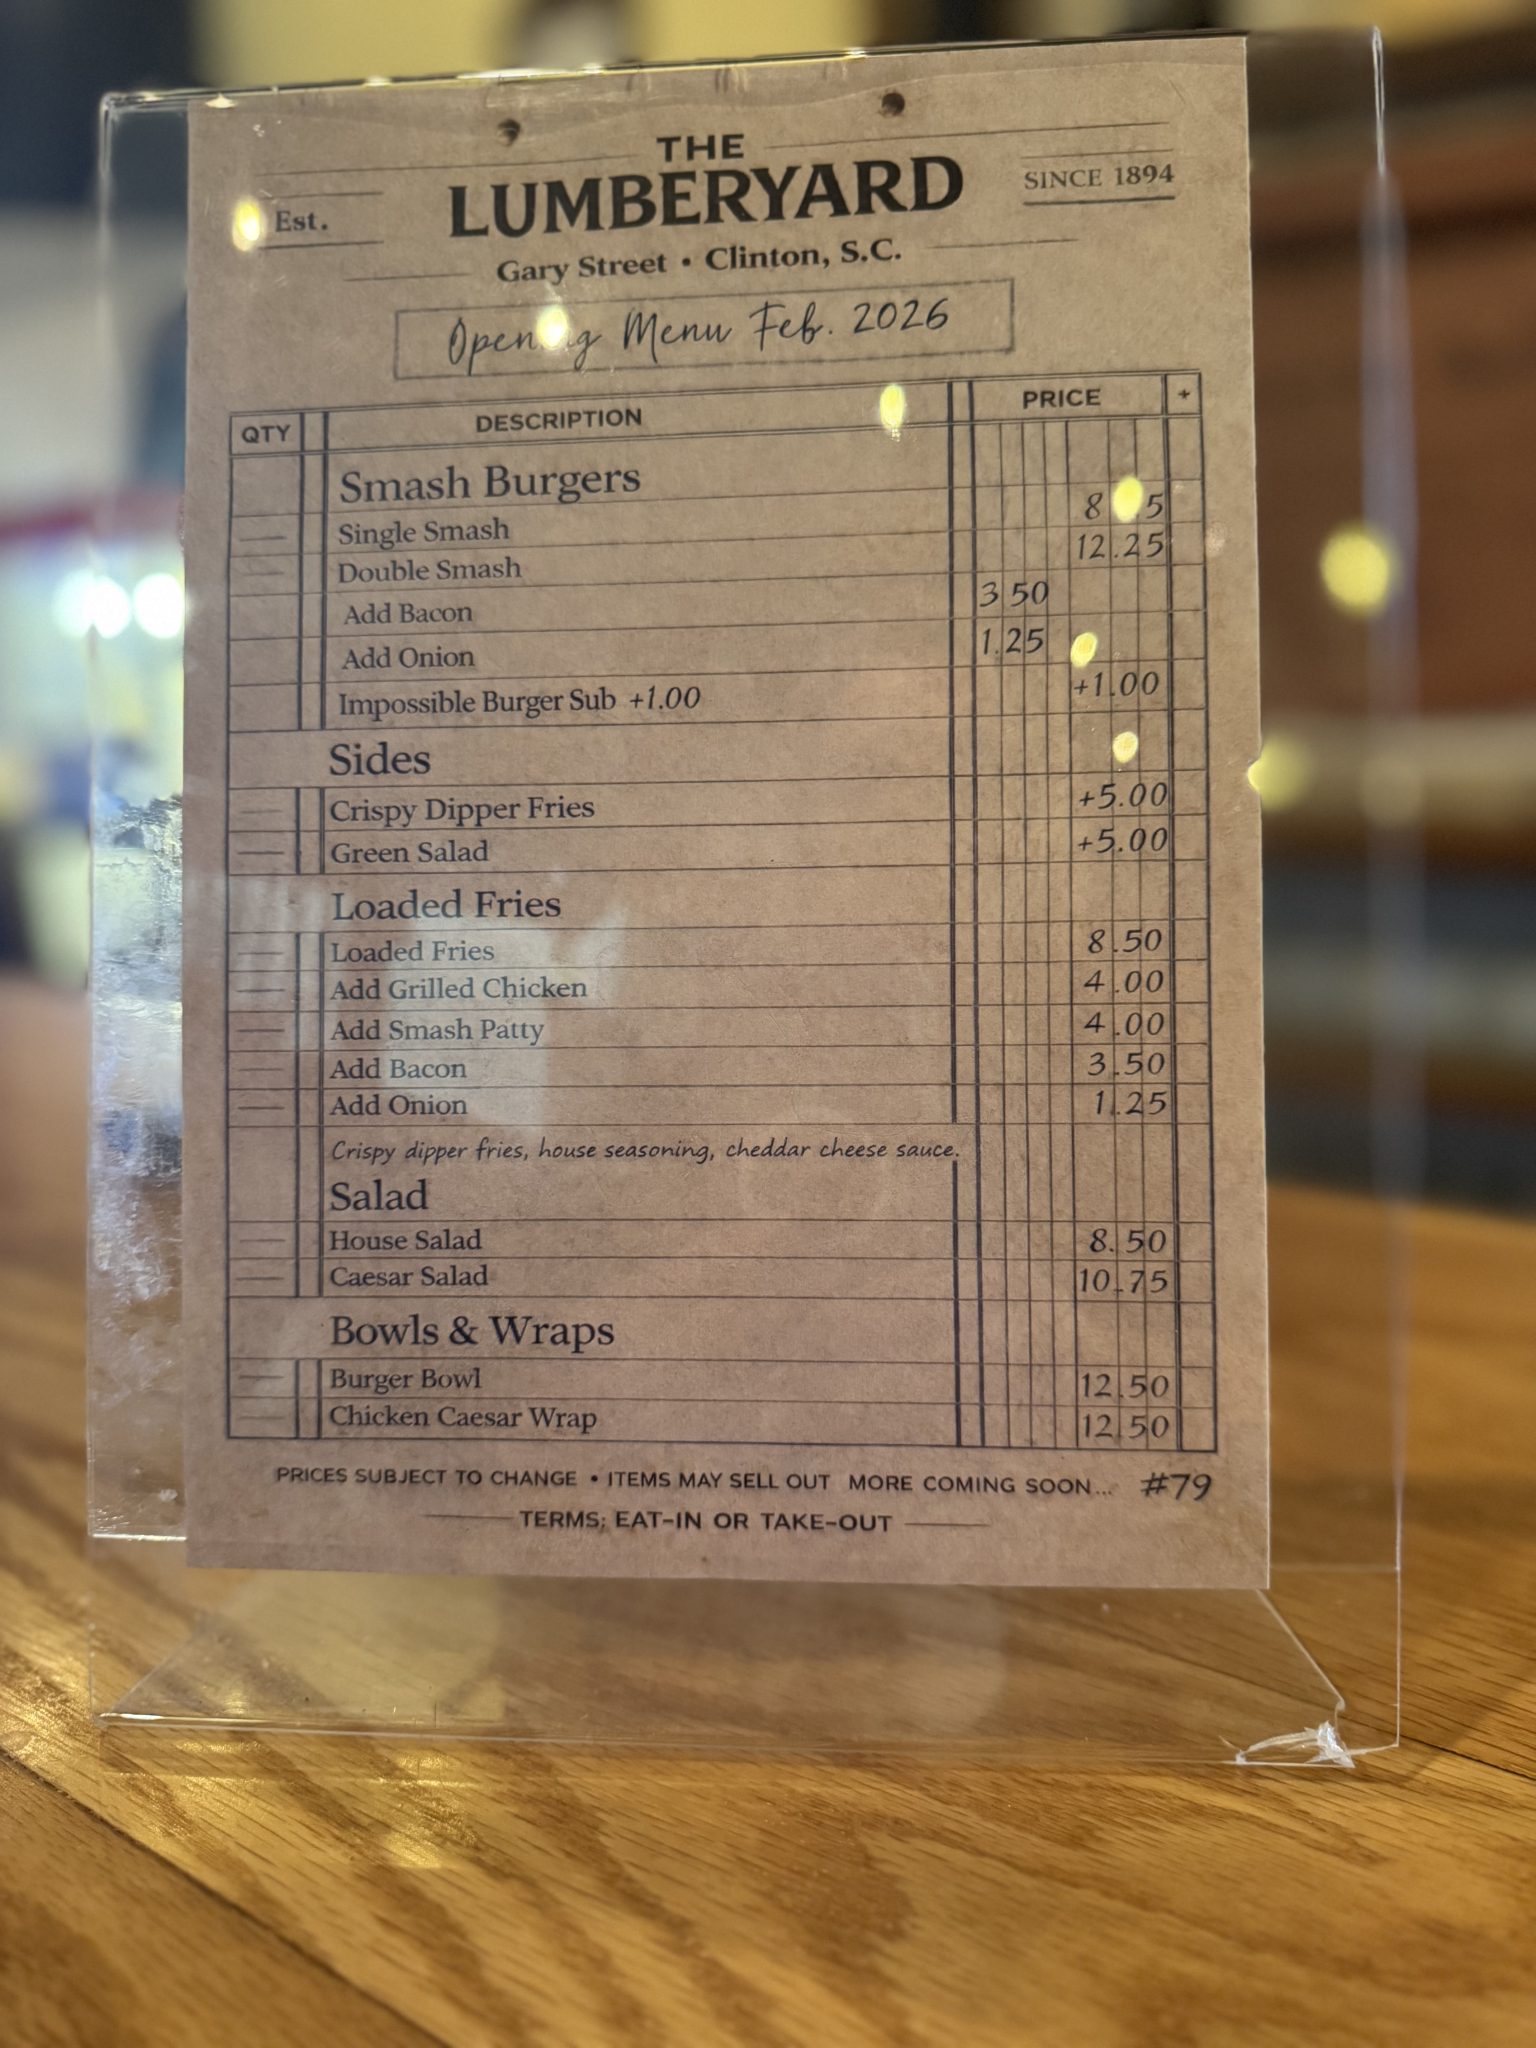 THE
LUMBERYARD
Est.
SINCE 1894
Gary Street • Clinton, S.C.
Opening Menu Feb. 2026
QTY DESCRIPTION PRICE +
Smash Burgers
Single Smash
Double Smash 12.25
Add Bacon 3 50
Add Onion 1.25
Impossible Burger Sub +1.00 +1.00
Sides
Crispy Dipper Fries +5.00
Green Salad +5.00
Loaded Fries
Loaded Fries 8.50
Add Grilled Chicken 4.00
Add Smash Patty 4.00
Add Bacon 3.50
Add Onion 1.25
Crispy dipper fries, house seasoning, cheddar cheese sauce.
Salad
House Salad 8.50
Caesar Salad 10.75
Bowls & Wraps
Burger Bowl 12.50
Chicken Caesar Wrap 12.50
PRICES SUBJECT TO CHANGE • ITEMS MAY SELL OUT MORE COMING SOON... #79
TERMS; EAT-IN OR TAKE-OUT